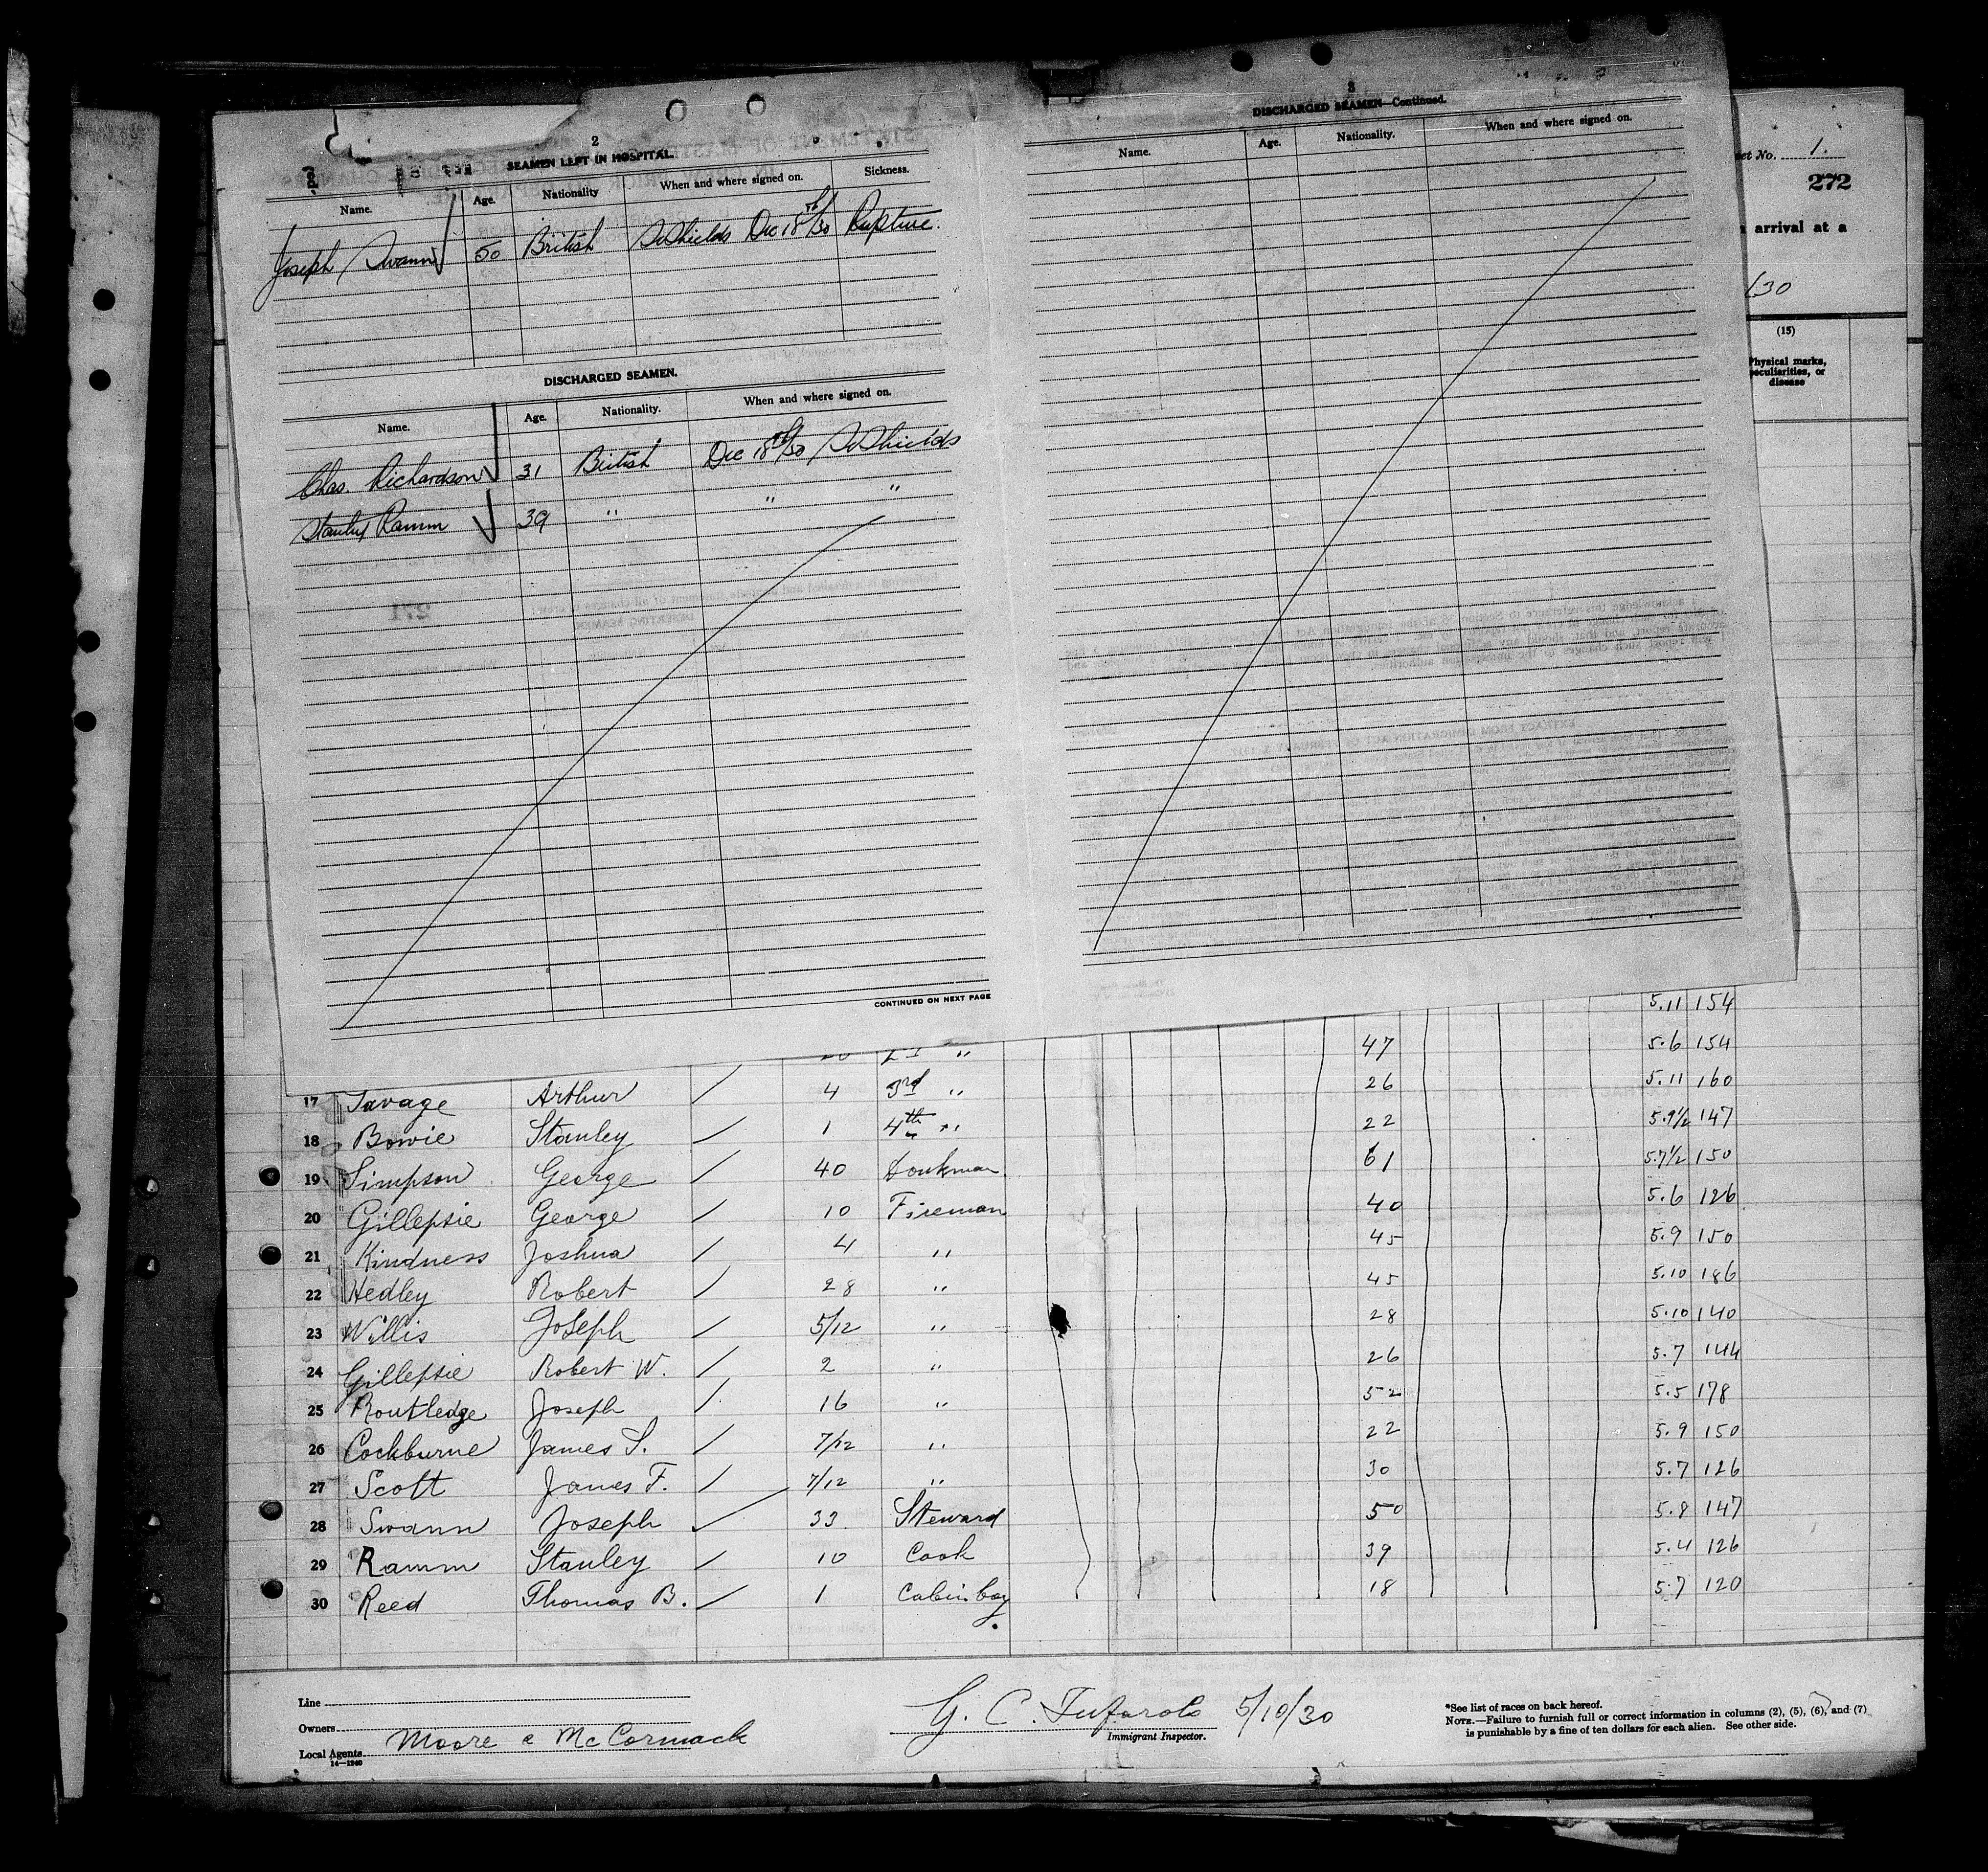 2
SEAMEN LEFT IN HOSPITAL.
Name. Age. Nationality When and where signed on. Sickness.
Joseph Swann 50 British So Shields Dec 18th/30 Rupture.
DISCHARGED SEAMEN.
Name. Age. Nationality. When and where signed on.
Chas. Richardson 31 British Dec 18th/30 So Shields
Stanley Ramm 39 " " "
CONTINUED ON NEXT PAGE
3
DISCHARGED SEAMEN—Continued.
Name. Age. Nationality. When and where signed on.
No. 1.
272
arrival at a
/30
(15)
Physical marks,
peculiarities, or
disease
5.11 154
2nd " 47 5.6 154
17 Savage Arthur 4 3rd " 26 5.11 160
18 Bowie Stanley 1 4th " 22 5.9½ 147
19 Simpson George 40 Donkman 61 5.7½ 150
20 Gillepsie George 10 Fireman 40 5.6 126
21 Kindness Joshua 4 " 45 5.9 150
22 Hedley Robert 28 " 45 5.10 186
23 Willis Joseph 5/12 " 28 5.10 140
24 Gillepsie Robert W. 2 " 26 5.7 144
25 Routledge Joseph 16 " 52 5.5 178
26 Cockburne James S. 7/12 " 22 5.9 150
27 Scott James F. 7/12 " 30 5.7 126
28 Swann Joseph 33 Steward 50 5.8 147
29 Ramm Stanley 10 Cook 39 5.4 126
30 Reed Thomas B. 1 Cabin boy 18 5.7 120
Line
Owners
Local Agents Moore & McCormack
14—1240
G. C. Tufarolo 5/10/30
Immigrant Inspector.
*See list of races on back hereof.
NOTE.—Failure to furnish full or correct information in columns (2), (5), (6), and (7)
is punishable by a fine of ten dollars for each alien. See other side.